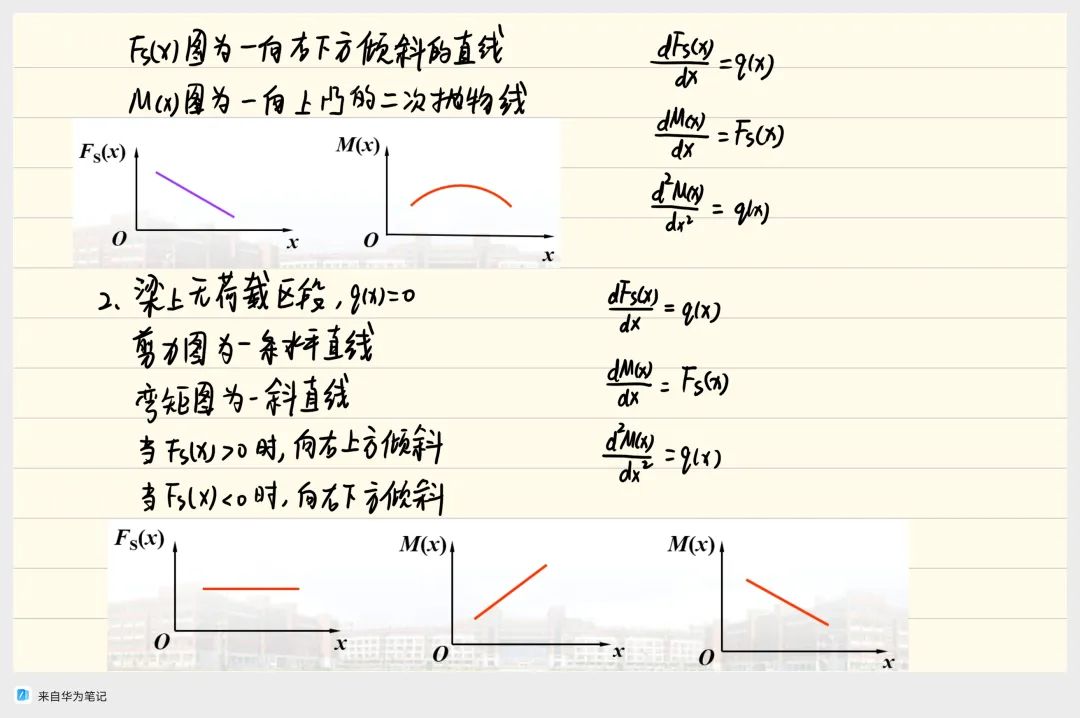 Fs(x)图为一向右下方倾斜的直线
M(x)图为一向上凸的二次抛物线
dFs(x)/dx = q(x)
dM(x)/dx = Fs(x)
d²M(x)/dx² = q(x)
Fs(x)
O
x
M(x)
O
x
2、梁上无荷载区段,q(x)=0
剪力图为一条水平直线
弯矩图为一斜直线
当Fs(x)>0时,向右上方倾斜
当Fs(x)<0时,向右下方倾斜
dFs(x)/dx = q(x)
dM(x)/dx = Fs(x)
d²M(x)/dx² = q(x)
Fs(x)
O
x
M(x)
O
x
M(x)
O
x
来自华为笔记